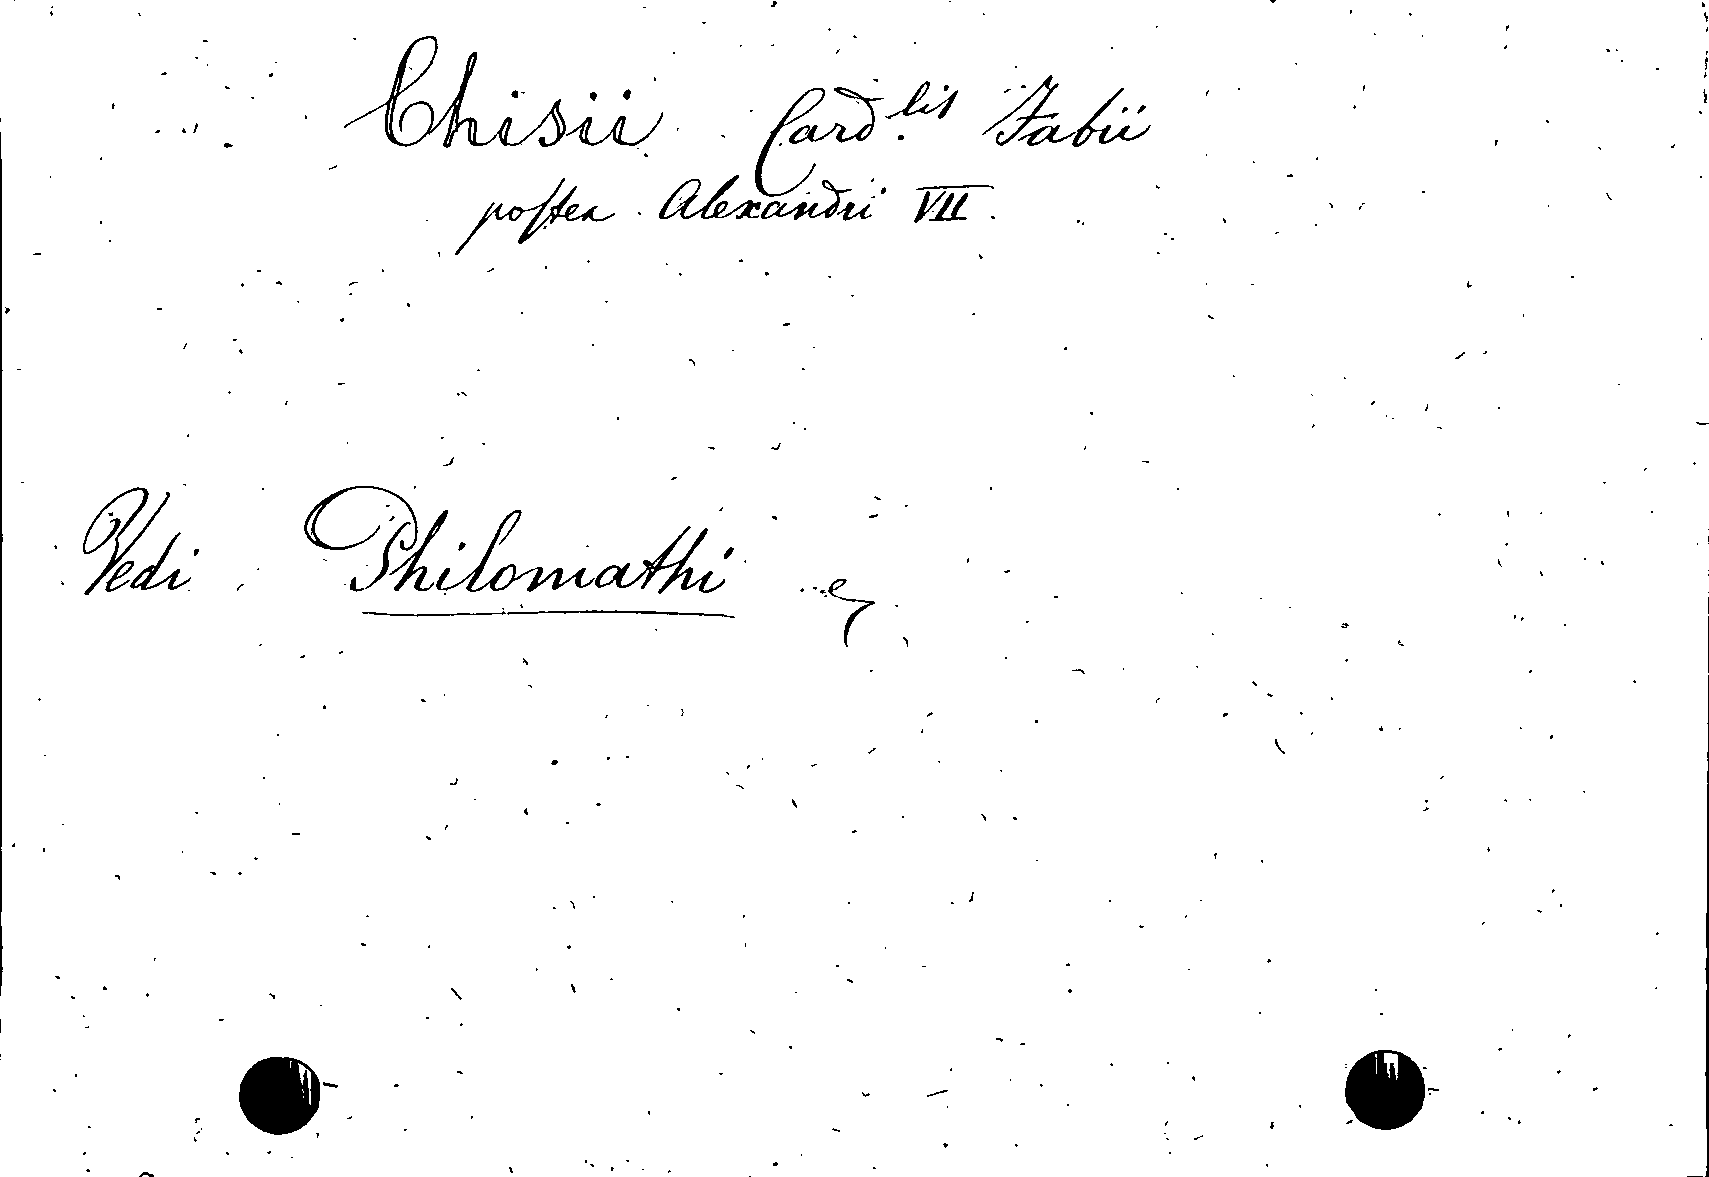 Chisii Card.lis Fabii
postea Alexandri VII.
Vedi Philomathi